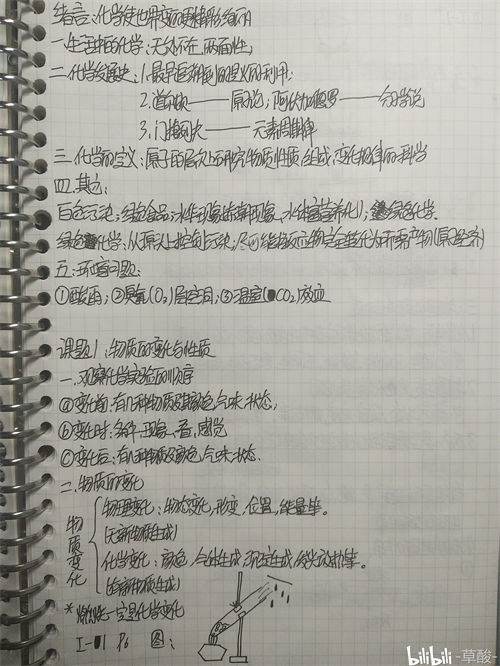 绪言:化学使世界变得更加绚丽多彩
一.生活中的化学:无处不在,两面性;
二.化学发展史:1.最早是对火的利用;
2.道尔顿——原子论,阿伏加德罗——分子学说
3.门捷列夫——元素周期律
三.化学的定义:原子的层次上研究物质性质,组成,变化规律的科学
四.其它:
白色污染;绿色食品;水华现象,赤潮现象,水体富营养化;绿色化学.
绿色化学:从源头上控制污染;尽可能让反应物完全转化为所需产物(原子经济)
五.环境问题:
①酸雨;②臭氧(O₃)层空洞;③温室(CO₂)效应
课题1:物质的变化与性质
一.观察化学实验的顺序
ⓐ变化前:有几种物质及其颜色,气味,状态;
ⓑ变化时:条件,现象,声音,感觉
ⓒ变化后:有几种物质及颜色,气味,状态.
二.物质的变化
物质变化
物理变化:物态变化,形变,位置,能量等。
(无新物质生成)
化学变化:颜色,气体生成,沉淀生成,发光放热等。
(有新物质生成)
*燃烧一定是化学变化
I-1 P6 图:
bilibili -草酸-